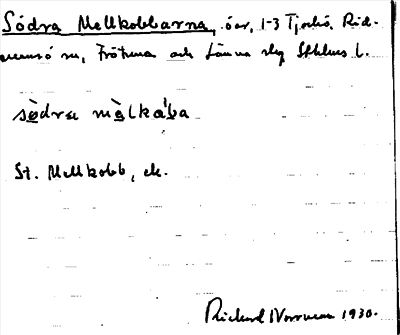 Södra Mellkobbarna, öar, 1-3 Tjockö, Råd-
mansö sn, Frötuna och Länna slg Sthlms l.
södra mèlkåba
St. Mellkobb, ek.
Rickard Norrman 1930.